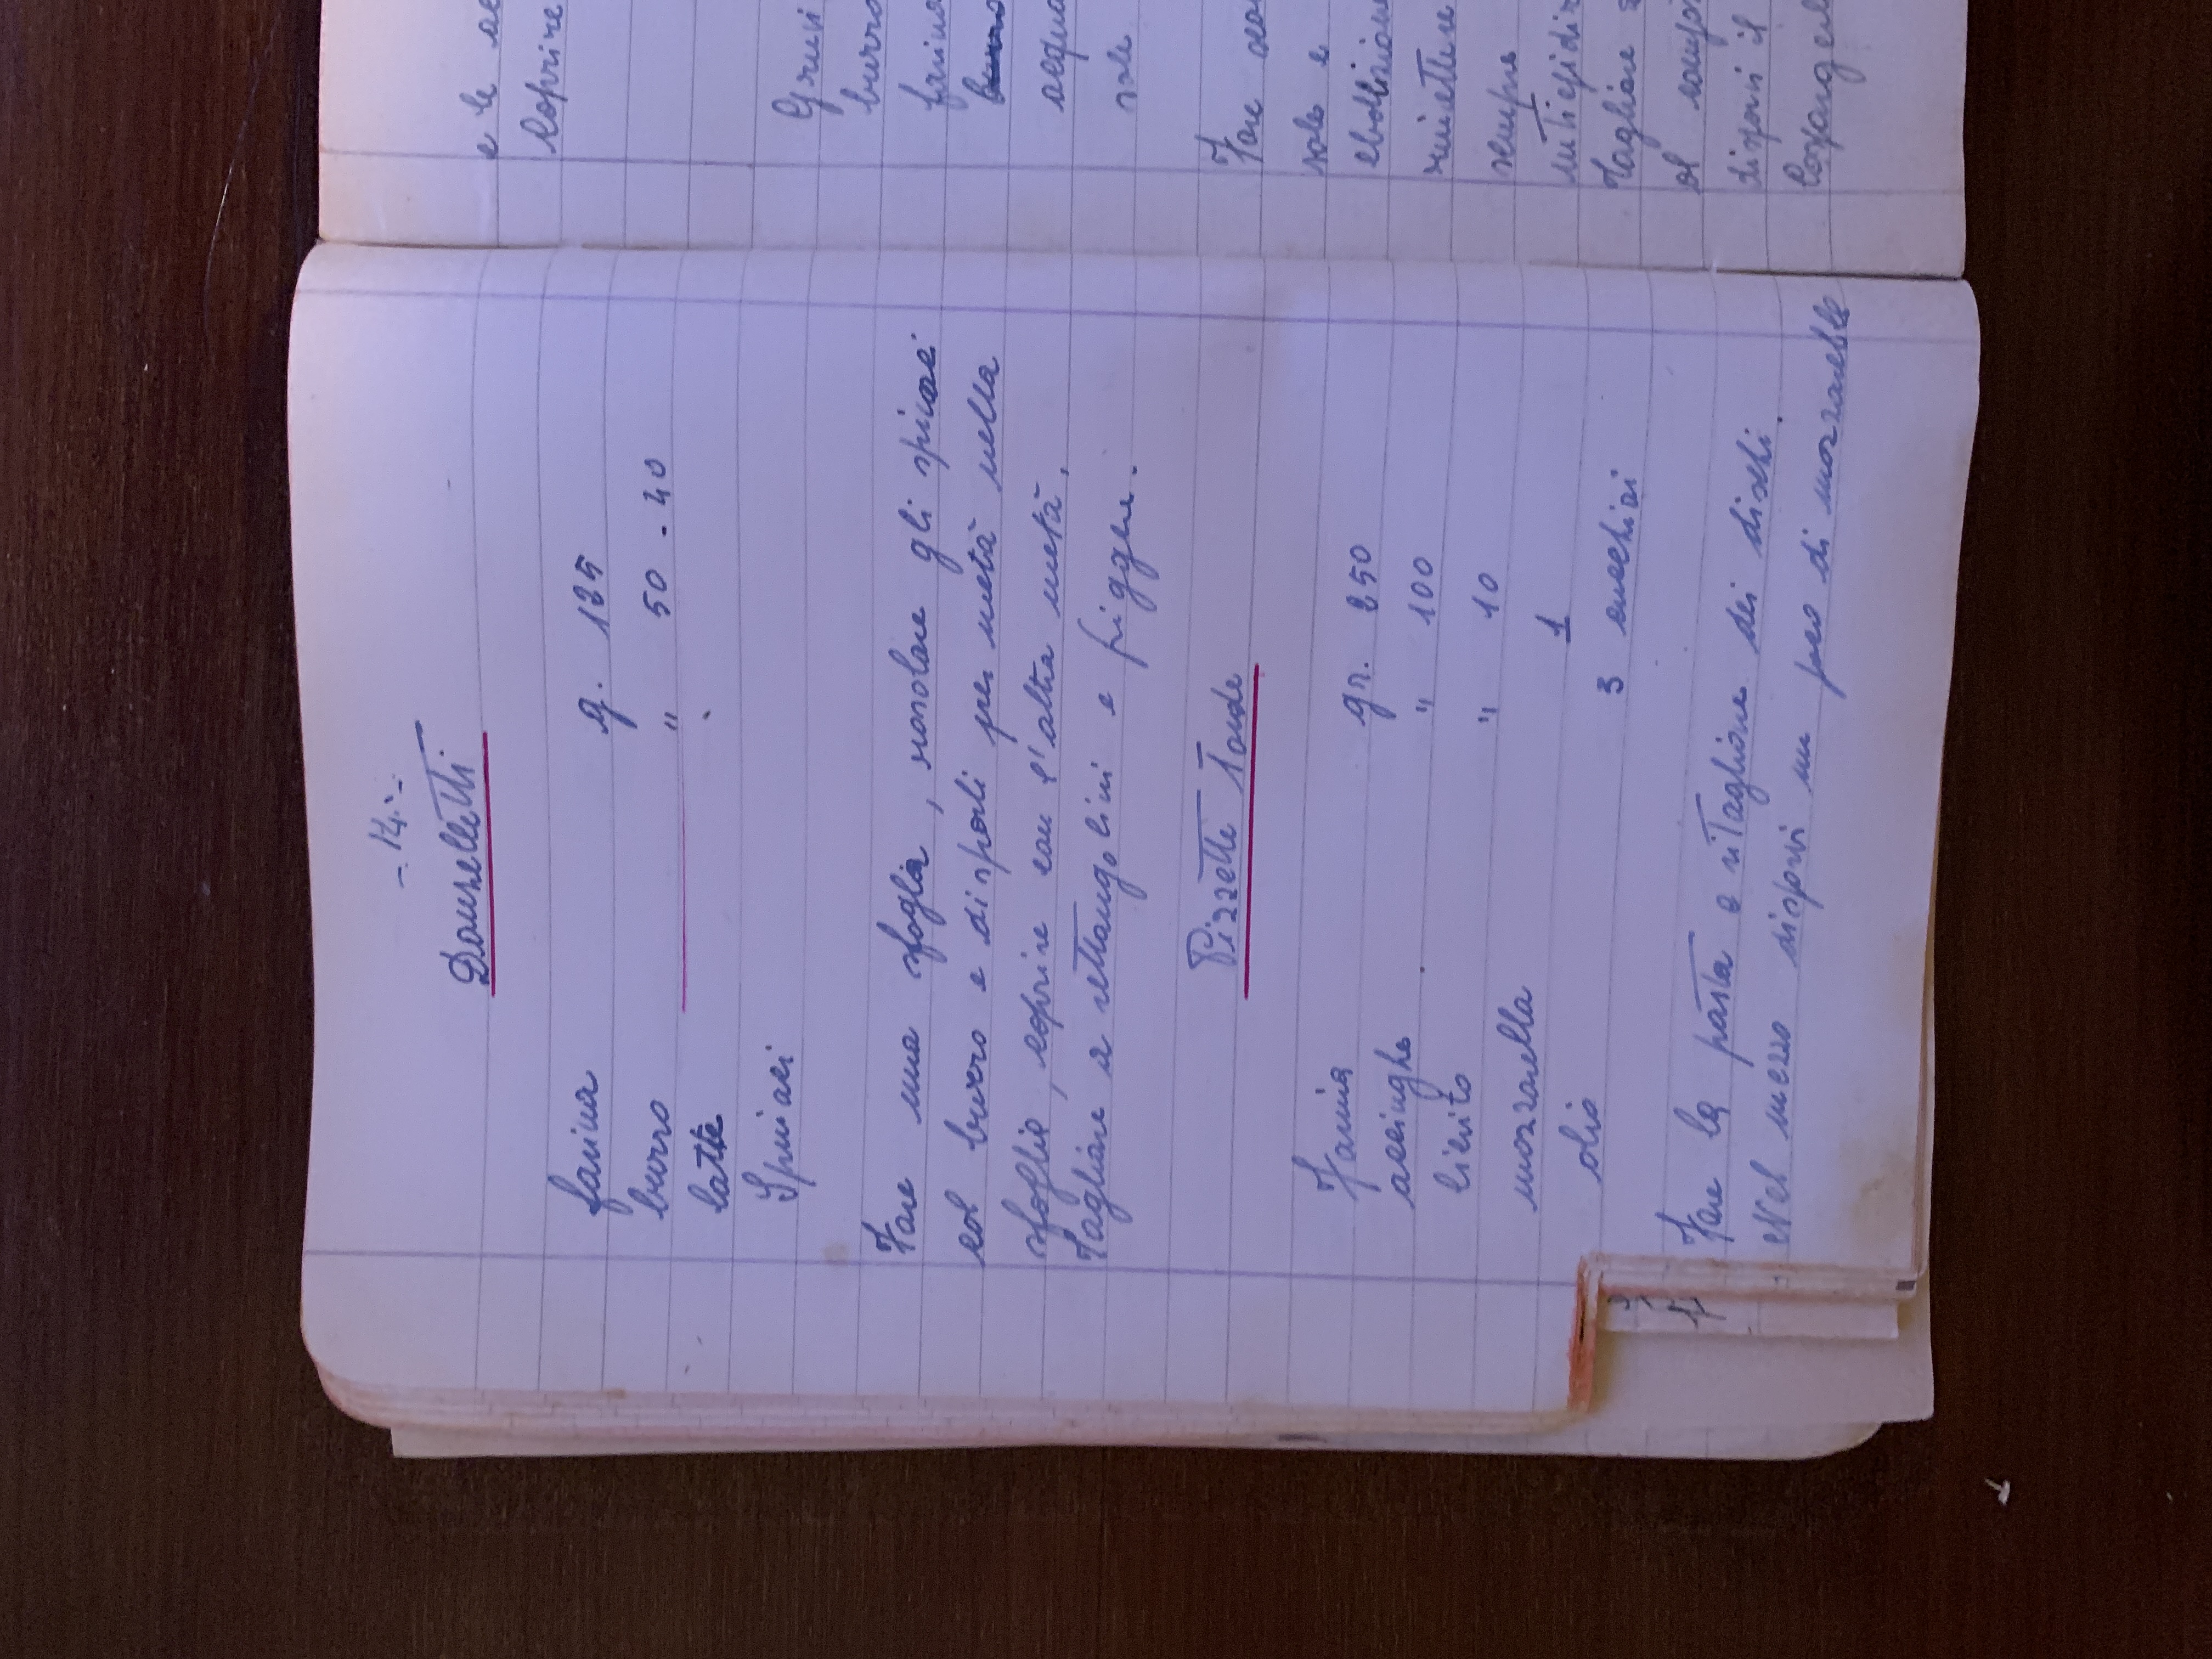 - 14. -
Donzelletti
farina g. 125
burro " 50 - 40
latte
Spinaci
Fare una sfoglia, rosolare gli spinaci
col burro e disporli per metà nella
sfoglia, coprire con l'altra metà.
Tagliare a rettangolini e friggere.
Pizzette Tonde
Farina gr. 250
acciughe " 100
lievito " 10
mozzarella 1
olio 3 cucchiai
Fare la pasta e ritagliare dei dischi.
Nel mezzo disporvi un poco di mozzarella
e le ac
Coprire
burro
farina
burro
acqua
sale
Fare
sale e
ebollizione
rimettere
sempre
intiepidir
Tagliare
il
disporvi il
Cospargerl